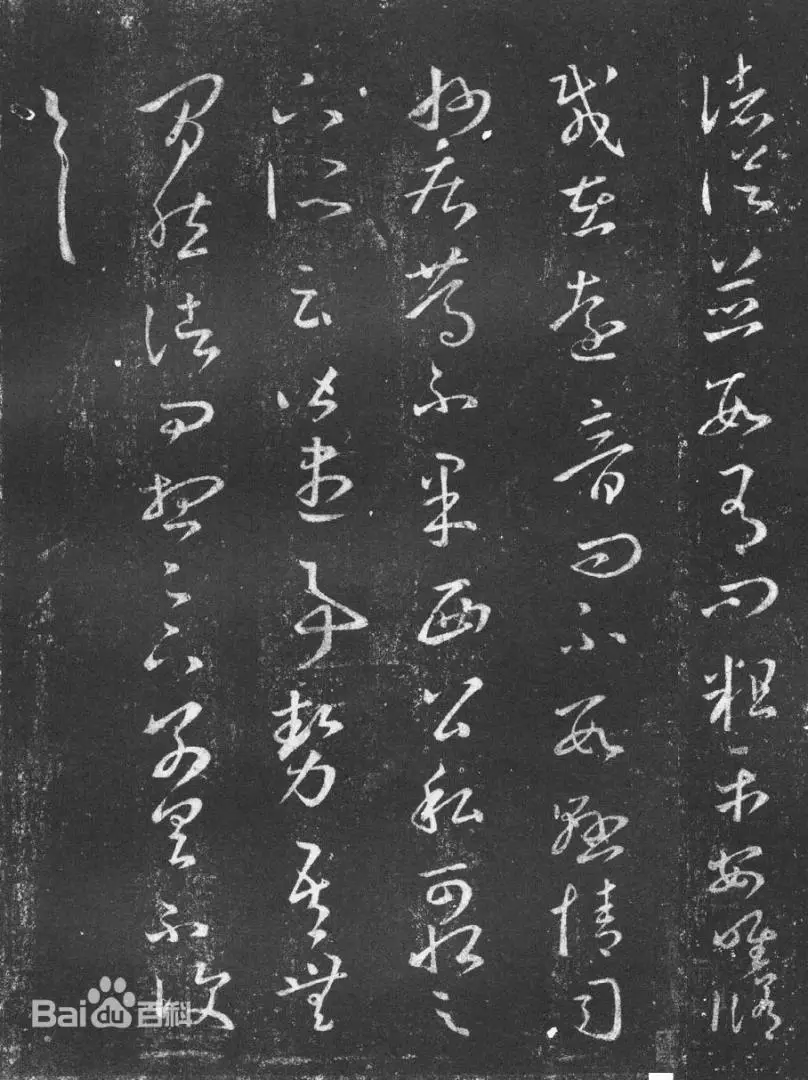 諸從並數有問粗平安唯脩
載在遠音問不數懸情司
州疾篤不果西公私可恨足
下所云皆盡事勢吾無
間然諸問想足下別具不復
一一
Baidu百科